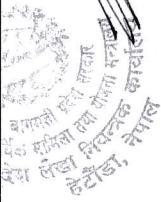 बागमती प्रदेश सरकार
मामिला तथा योजना मन्त्रालय
प्रदेश लेखा नियन्त्रक कार्यालय
हेटौंडा, नेपाल